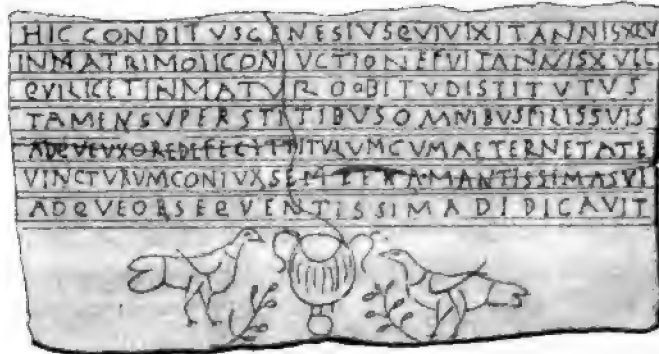 HICCONDITVSGENESIVSQVIVIXITANNIS
INMATRIMOIICONIVCTIONEFVITANNIS
QVILICETINMATVROOBITVDISTITVTVS
TAMENSVPERSTITIBVSOMNIBVSFILISSVIS
ADQVEVXOREDEFECITTITVLVMCVMAETERNETATE
VINCTVRVMCONIVXSEMPERAMANTISSIMASVI
ADQVEOBSEQVENTISSIMADIDICAVIT